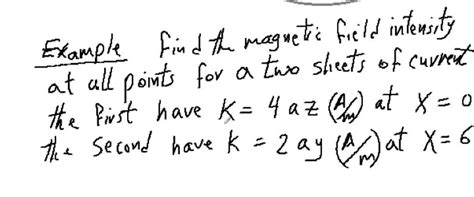 Example find the magnetic field intensity
at all points for a two sheets of current
the first have K = 4 az (A/m) at X = 0
the Second have K = 2 ay (A/m) at X = 6